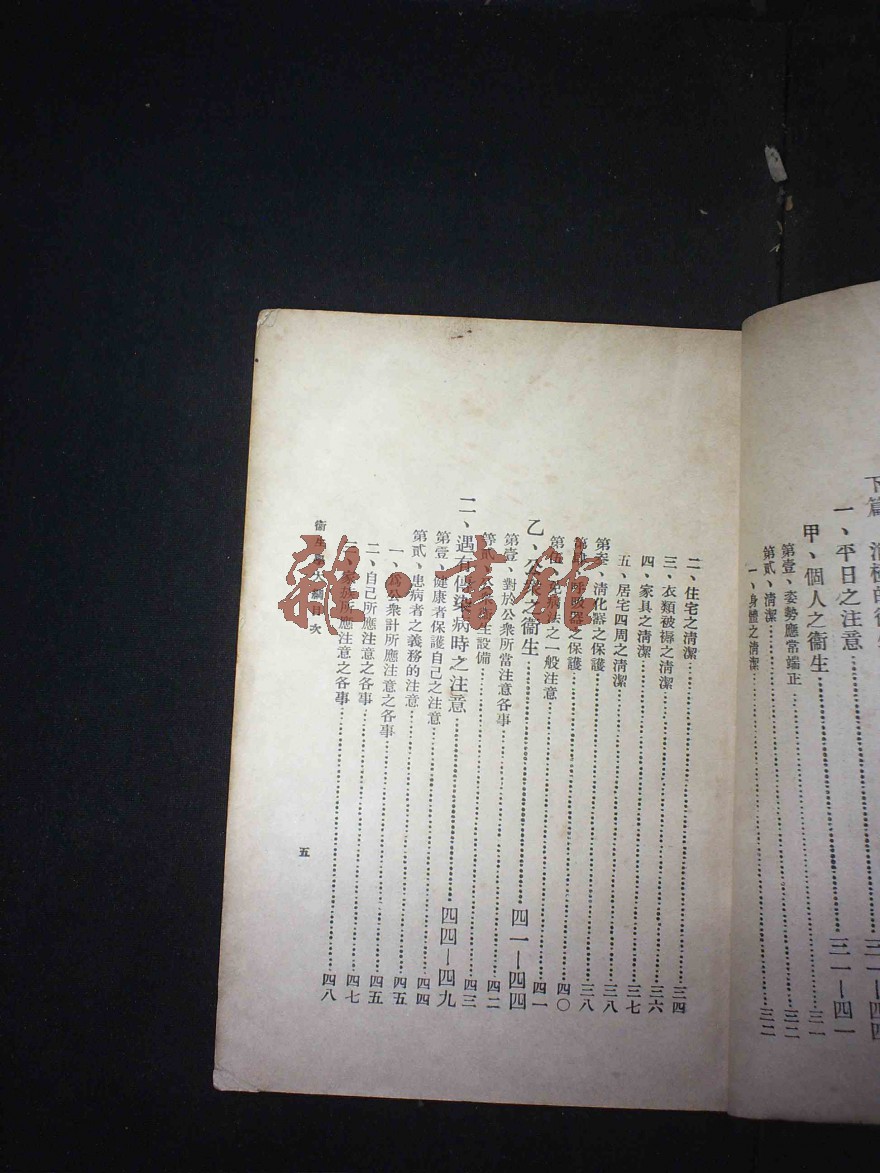 下篇
一、平日之注意……三一—四四
甲、個人之衞生……三一—四一
第壹、姿勢應常端正……三一
第貳、清潔……三二
一、身體之清潔……三二
二、住宅之清潔……三四
三、衣類被褥之清潔……三六
四、家具之清潔……三七
五、居宅四周之清潔……三八
第叁、消化器之保護……三八
第肆、呼吸器之保護……四〇
第伍、病法之一般注意……四一
乙、公衆之衞生……四一—四四
第壹、對於公衆所當注意各事……四二
第貳、公衆衞生設備……四三
二、遇有傳染病時之注意……四四—四九
第壹、健康者保護自己之注意……四四
第貳、患病者之義務的注意……四五
一、爲公衆計所應注意之各事……四五
二、自己所應注意之各事……四七
三、家族所應注意之各事……四八
衞生學大綱目次
五
雜·書館